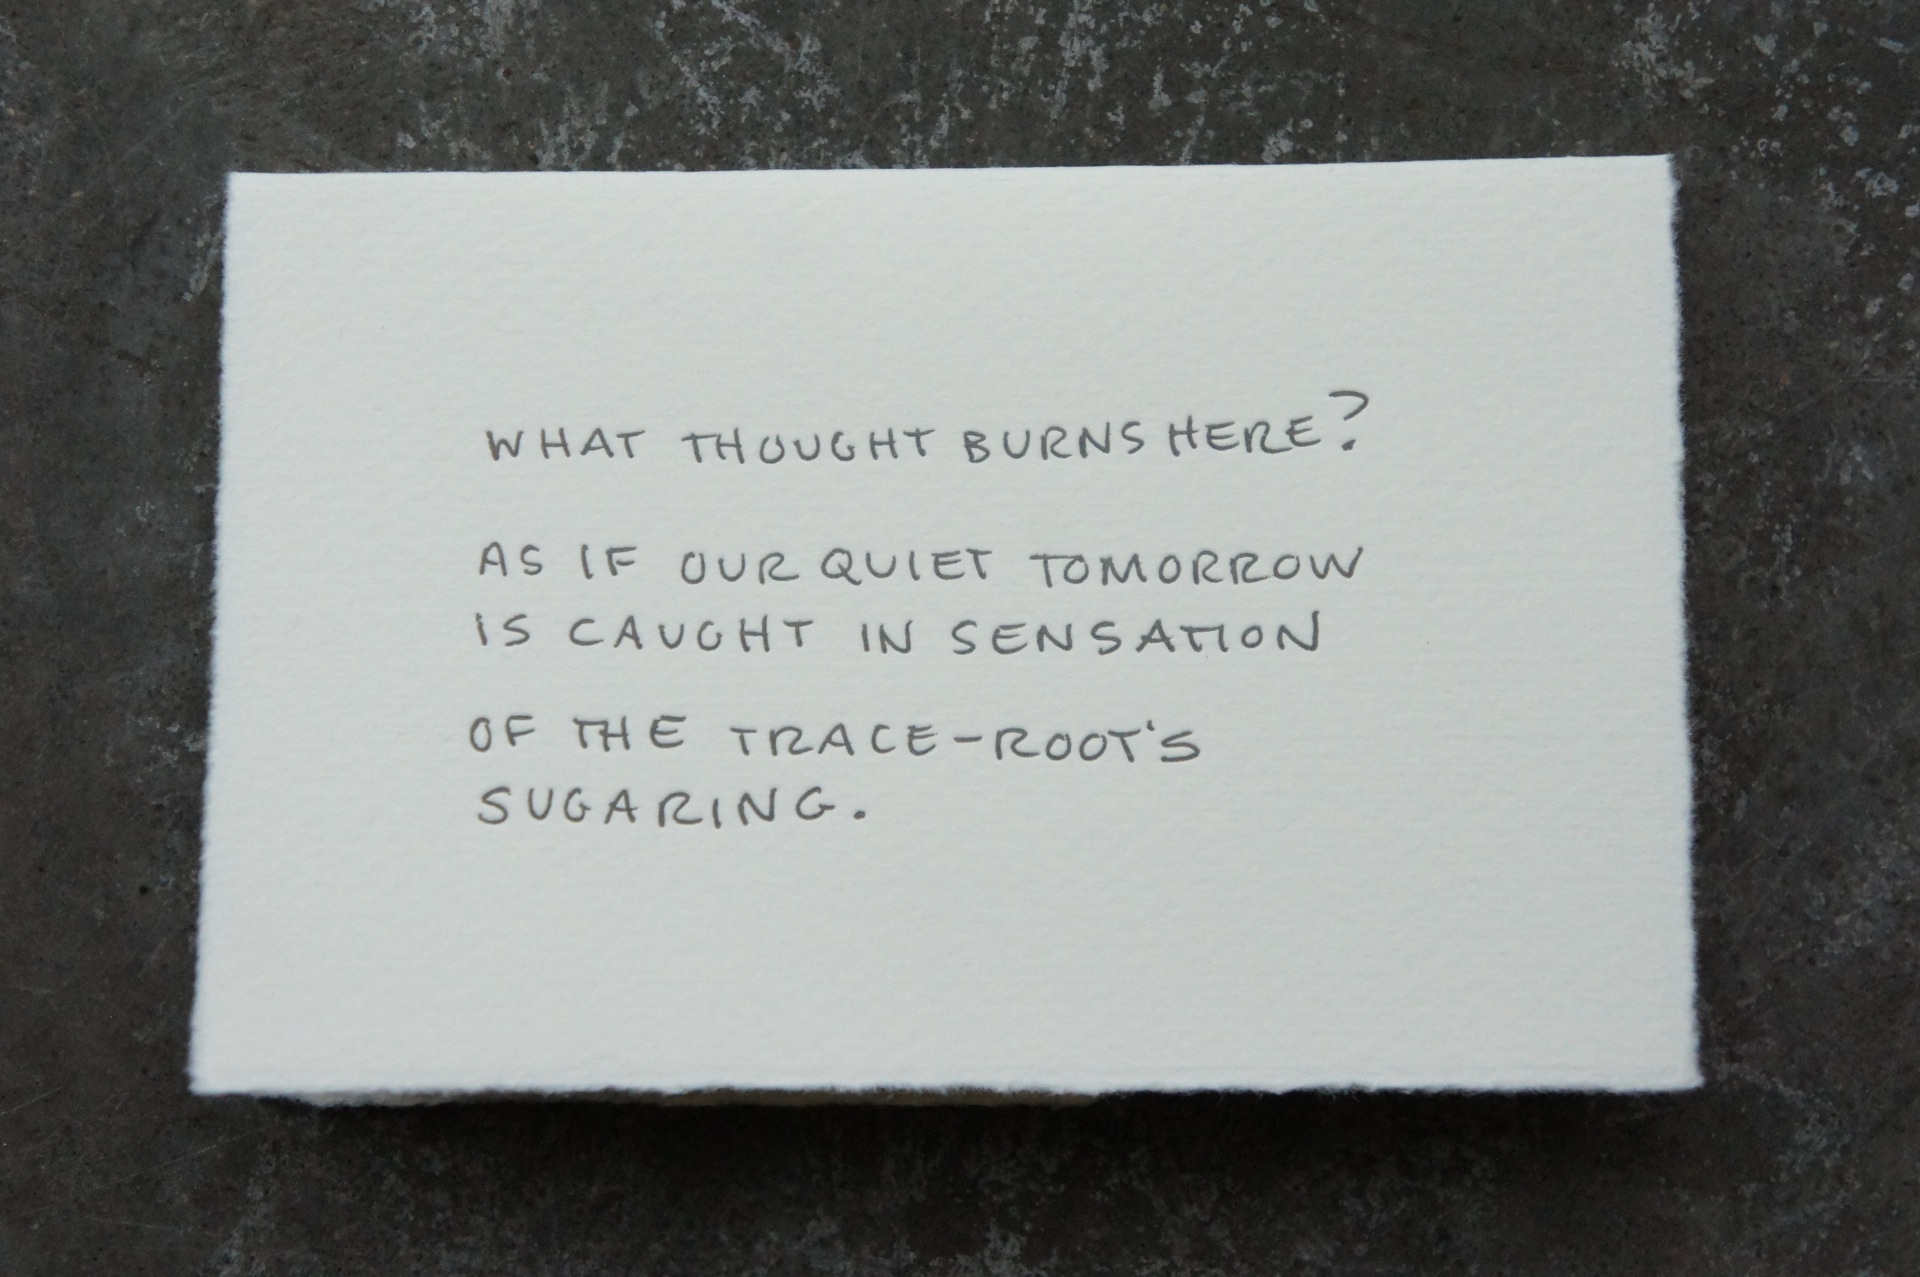 WHAT THOUGHT BURNS HERE?
AS IF OUR QUIET TOMORROW
IS CAUGHT IN SENSATION
OF THE TRACE-ROOT'S
SUGARING.